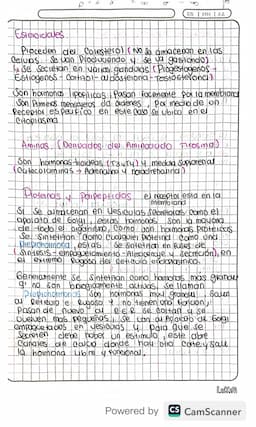 Esteroidales
Proceden del Colesterol (No se almacenan en las
Celulas. Se van Produciendo y se va gastando)
Se Secretan en varias glandulas (Progestagenos -
Estrogenos - Cortisol - aldosterona - Testosterona)
Son hormonas lipofilicas, Pasan facilmente por la membrana
Son Primeros mensajeros de ordenes, Por medio de un
Receptor especifico en este caso se ubica en el
Citoplasma
Aminas. (Derivados del Aminoacido Tirosina)
Son hormonas tiroideas (T3 y T4) y medula suprarrenal
(Catecolaminas → Adrenalina y noradrenalina)
Proteinas y Polipeptidos el receptor esta en la
membrana
Si se almacenan en vesiculas secretoras como el
aparato de Golgi, estas hormonas son la mayoria
de todo el organismo, Como son hormonas Proteicas
Se Sintetizan como cualquier Proteina como una
Preprohormona, estas se sintetizan en Fases de
(Sintesis - empaquetamiento - Almacenaje y secreción), en
el Retículo Rugoso del
Generalmente se Sintetizan como hormonas más grandes
q' no son biologicamente activas, se llaman
Preprohormonas Son hormonas muy grandes, Salen
al Reticulo E. Rugoso y no tienen una Funcion,
Pasan de nuevo al R.E.R se cortan y se
vuelven mas Pequeñas, se van al Aparato de Golgi
empaquetados en vesiculas y Para que se
Secreten debe haber un estimulo, este abre
Canales de calcio donde hay otro corte y sale
la hormona Libre y Funcional.
Powered by CS CamScanner